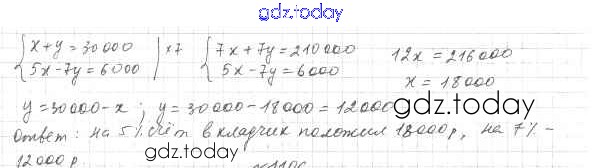 gdz.today
{x+y=30000 | ×7 {7x+7y=210000 12x=216000
{5x-7y=6000 | {5x-7y=6000 x=18000
y=30000-x; y=30000-18000=12000
gdz.today
Ответ: на 5% счёт вкладчик положил 18000 р, на 7% -
12000 р.
gdz.today